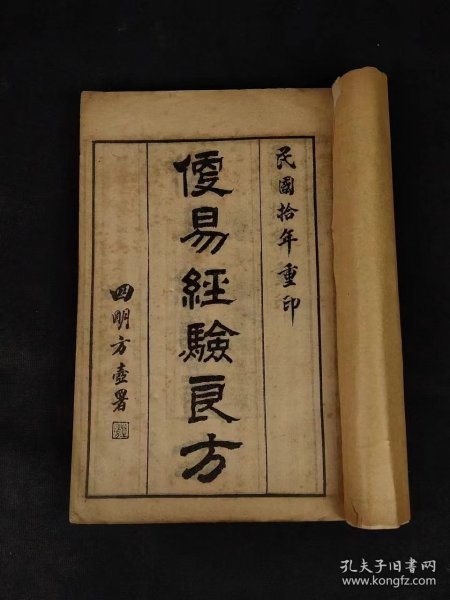 民國拾年重印
便易經驗良方
四明方壺署
孔夫子旧书网
www.kongfz.com